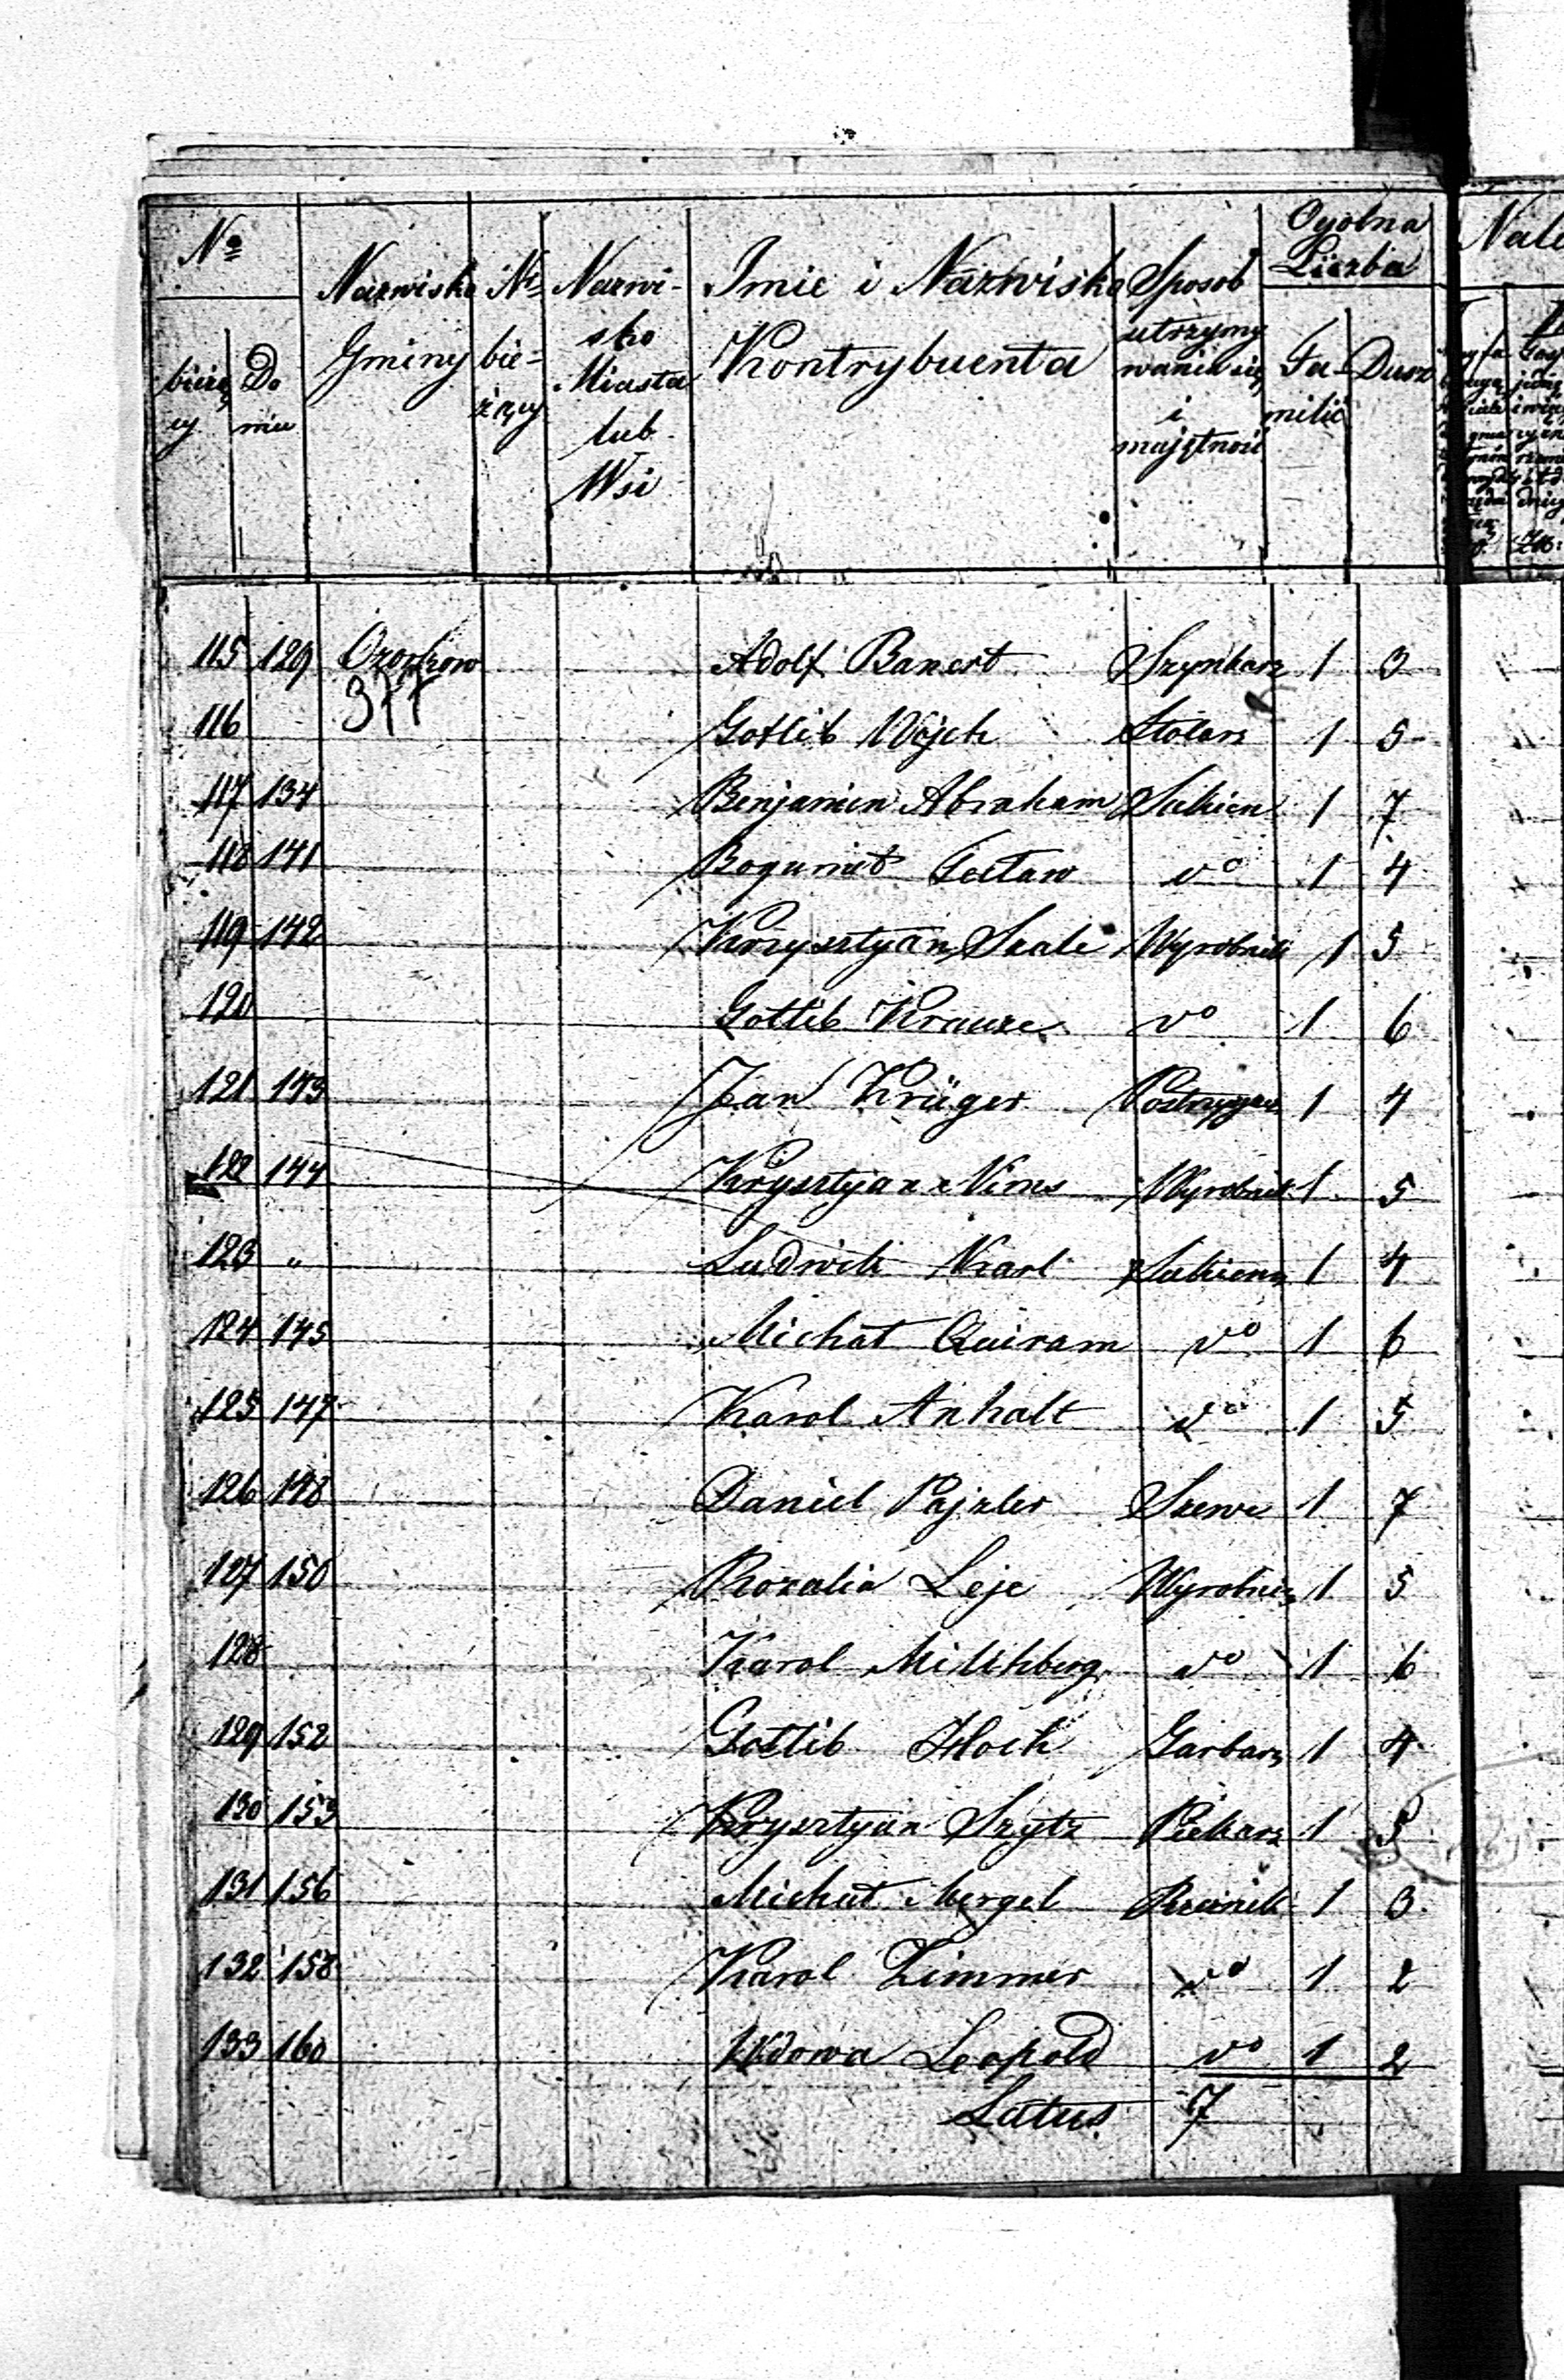 No
bieżą
cy
Do
mu
Nazwisko
Gminy
Nr
bie-
żący
Nazwi-
sko
Miasta
lub
Wsi
Imie i Nazwisko
Kontrybuenta
Sposob
utrzymy
wania się
i
majętność
Ogolna
Liczba
Fa-
milii
Dusz
115 129 Ozorkow Adolf Banert Szynkarz 1 3
377
116 Gotlib Wojch Stolarz 1 5
117 134 Benjamin Abraham Sukien 1 7
118 141 Bogumił vo 1 4
119 142 Krzysztyan Szale Wyrobnik 1 5
120 Gottlib Krauze vo 1 6
121 143 Jan Krüger Postrzygacz 1 4
122 144 Krysztyan Wyrobnik 1 5
123 " Ludwik Karl Sukienn 1 4
124 145 Michał Quiram vo 1 6
125 147 Karol Anhalt vo 1 5
126 148 Daniel Pajzler Szewc 1 7
127 150 Rozalia Leje Wyrobnic 1 5
128 Karol Milchberg vo 1 6
129 152 Gottlib Hoch Garbarz 1 4
130 153 Krysztyan Szytz Piekarz 1 5
131 156 Michał Mergel 1 3
132 158 Karol Zimmer vo 1 2
133 160 Wdowa Leopold vo 1 2
Latus 7